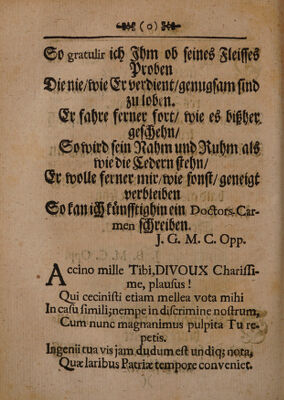 (o)
So gratulir ich Ihm ob seines Fleisses
Proben
Die nie/wie Er verdient/genugsam sind
zu loben.
Er fahre ferner fort/ wie es bißher
geschehn/
So wird sein Nahm und Ruhm als
wie die Cedern stehn/
Er wolle ferner mir/wie sonst/geneigt
verbleiben
So kan ich künfftighin ein Doctors-Car-
men schreiben.
J. G. M. C. Opp.
Accino mille Tibi, DIVOUX Charissi-
me, plausus!
Qui cecinisti etiam mellea vota mihi
In casu simili; nempe in discrimine nostrum,
Cum nunc magnanimus pulpita Tu re-
petis.
Ingenii tua vis jam dudum est undiq; nota,
Quæ laribus Patriæ tempore conveniet.